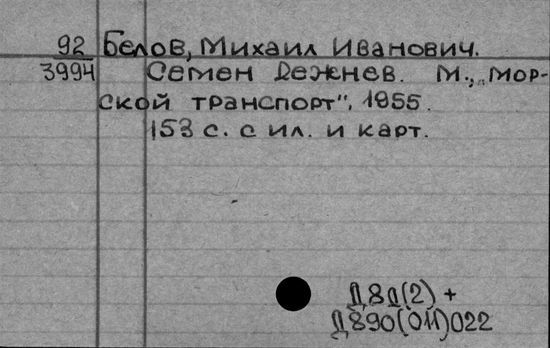 92 Белов, Михаил Иванович.
3994 Семен Дежнев. М., „Мор-
ской транспорт", 1955.
153 с. с ил. и карт.
Д8д(2) +
Д890(011)022